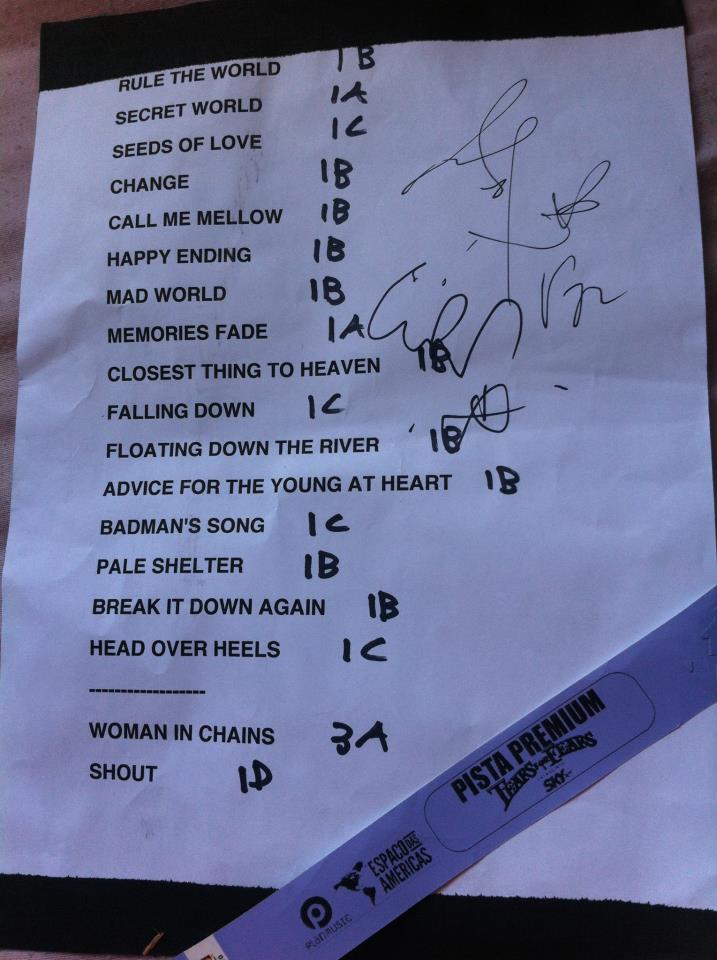 RULE THE WORLD 1B
SECRET WORLD 1A
SEEDS OF LOVE 1C
CHANGE 1B
CALL ME MELLOW 1B
HAPPY ENDING 1B
MAD WORLD 1B
MEMORIES FADE 1A
CLOSEST THING TO HEAVEN 1B
FALLING DOWN 1C
FLOATING DOWN THE RIVER 1B
ADVICE FOR THE YOUNG AT HEART 1B
BADMAN'S SONG 1C
PALE SHELTER 1B
BREAK IT DOWN AGAIN 1B
HEAD OVER HEELS 1C
------------------
WOMAN IN CHAINS 3A
SHOUT 1D
PISTA PREMIUM
TEARS FOR FEARS
SKY
ESPACO DAS
AMERICAS
PLANMUSIC